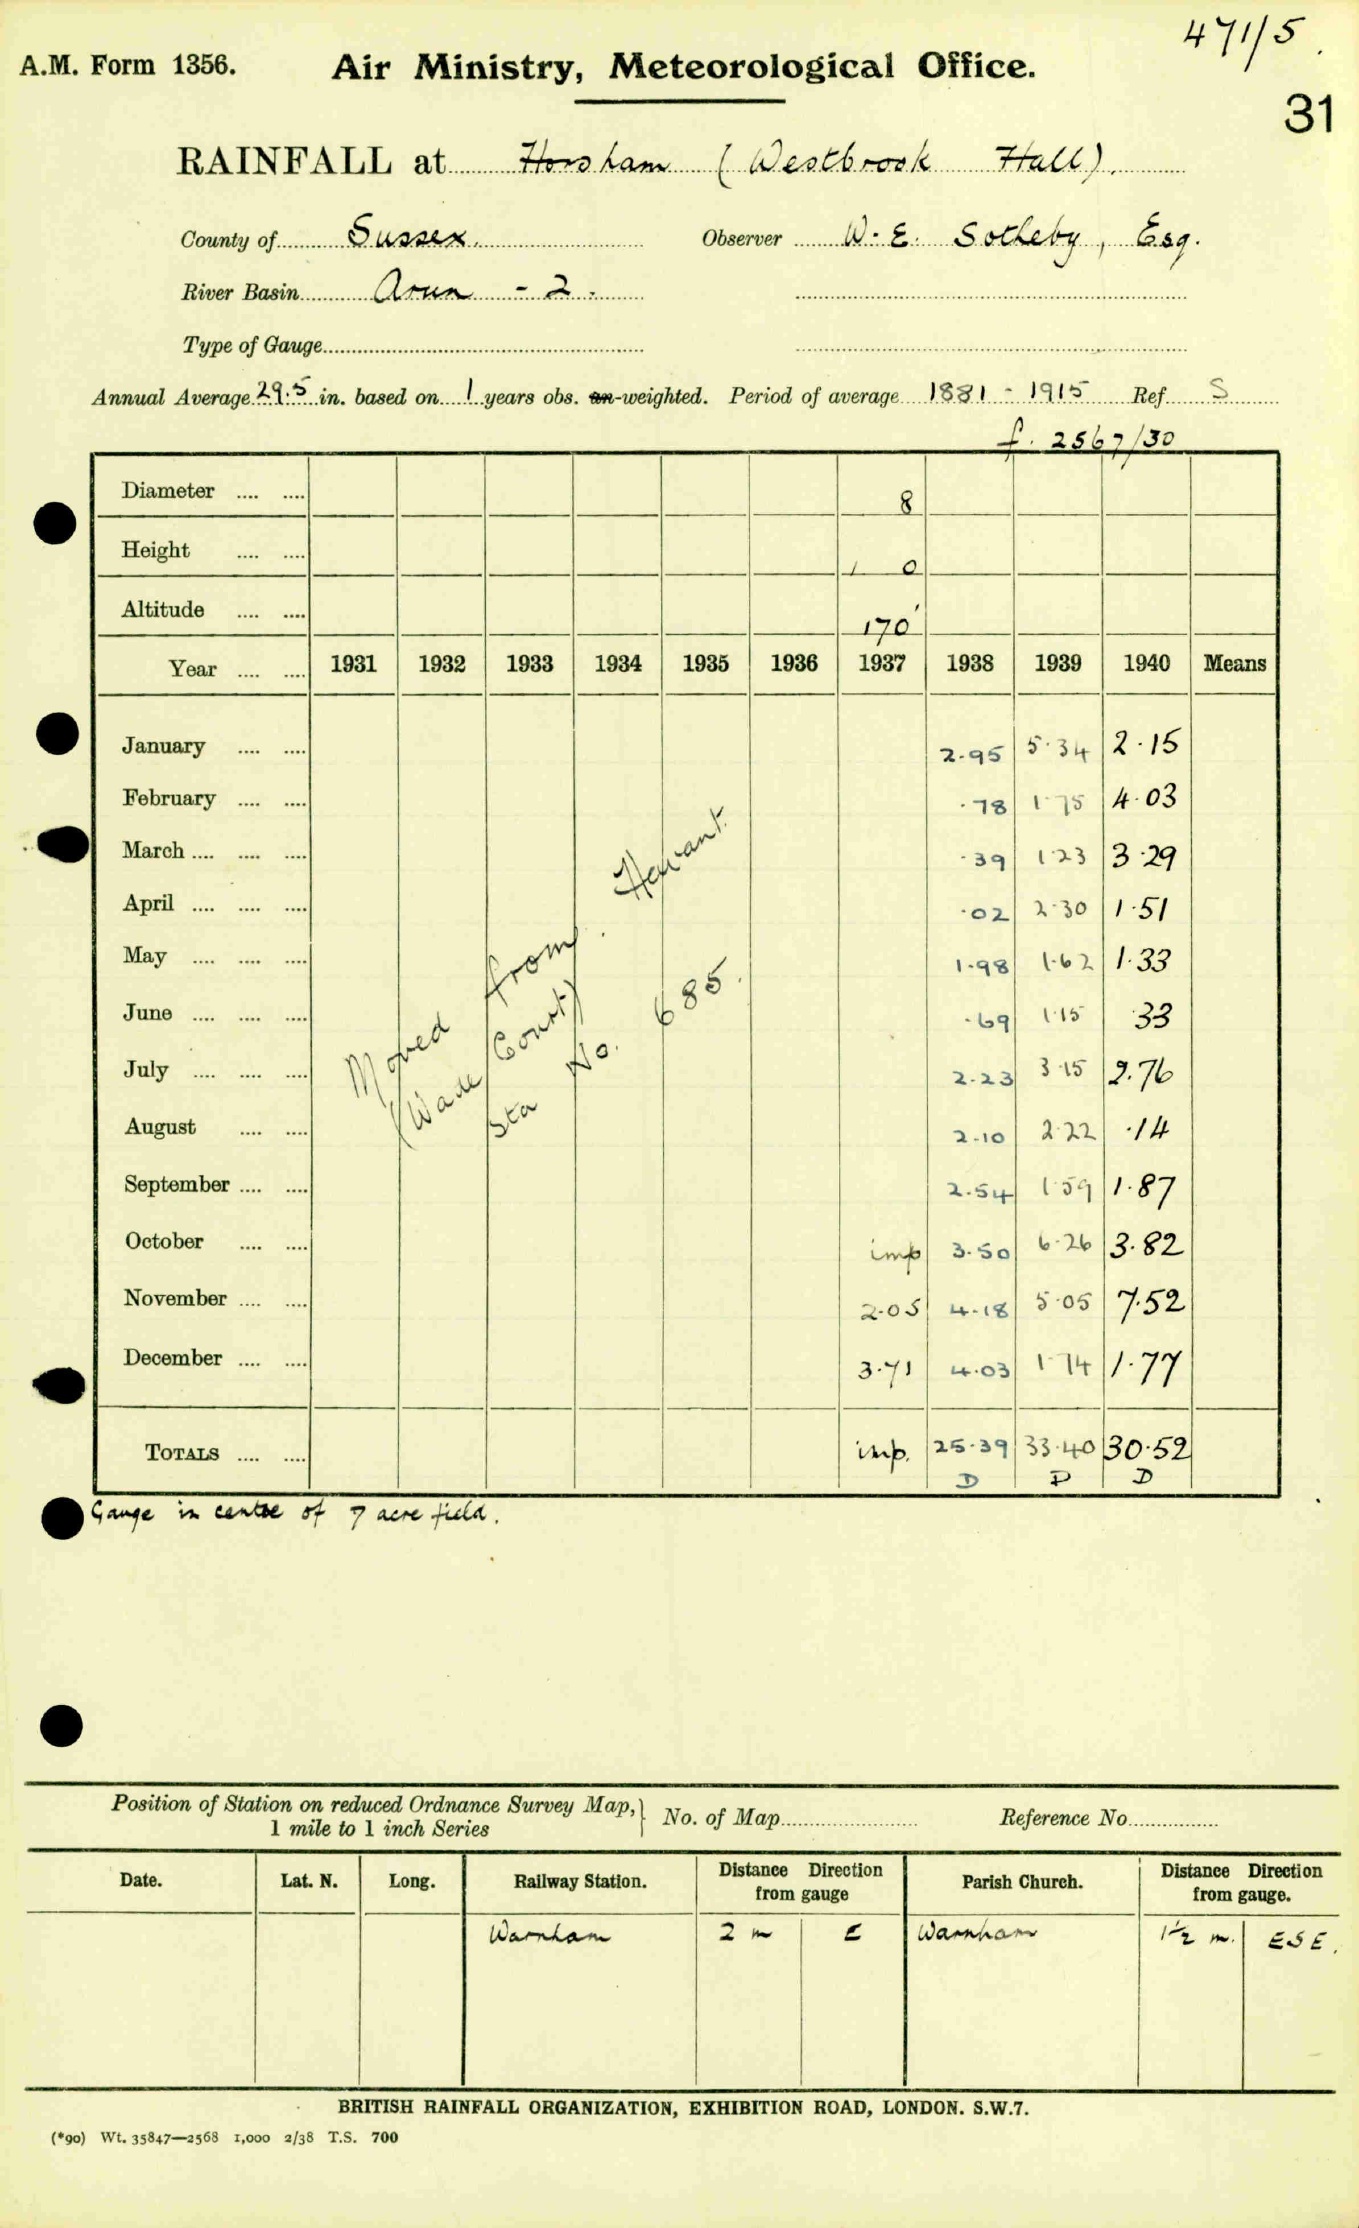 471/5.
A.M. Form 1356. Air Ministry, Meteorological Office.
31
RAINFALL at Horsham (Westbrook Hall).
County of Sussex. Observer W. E. Sotheby, Esq.
River Basin Arun - 2.
Type of Gauge
Annual Average 29.5 in. based on 1 years obs. un-weighted. Period of average 1881 - 1915 Ref S
f. 2567/30
Diameter .... .... 8
Height .... .... 1 0
Altitude .... .... 170'
Year .... .... 1931 1932 1933 1934 1935 1936 1937 1938 1939 1940 Means
January .... .... 2.95 5.34 2.15
February .... .... .78 1.75 4.03
March .... .... .... .39 1.23 3.29
April .... .... .... .02 2.30 1.51
May .... .... .... 1.98 1.62 1.33
June .... .... .... .69 1.15 .33
July .... .... .... 2.23 3.15 2.76
August .... .... 2.10 2.22 .14
September .... .... 2.54 1.59 1.87
October .... .... imp 3.50 6.26 3.82
November .... .... 2.05 4.18 5.05 7.52
December .... .... 3.71 4.03 1.74 1.77
Moved from Havant
(Wade Court)
Sta No. 685.
TOTALS .... .... imp. 25.39 33.40 30.52
D D D
Gauge in centre of 7 acre field.
Position of Station on reduced Ordnance Survey Map,
1 mile to 1 inch Series } No. of Map Reference No
Date. Lat. N. Long. Railway Station. Distance Direction from gauge Parish Church. Distance Direction from gauge.
Warnham 2 m E Warnham 1½ m. ESE.
BRITISH RAINFALL ORGANIZATION, EXHIBITION ROAD, LONDON. S.W.7.
(*90) Wt. 35847—2568 1,000 2/38 T.S. 700